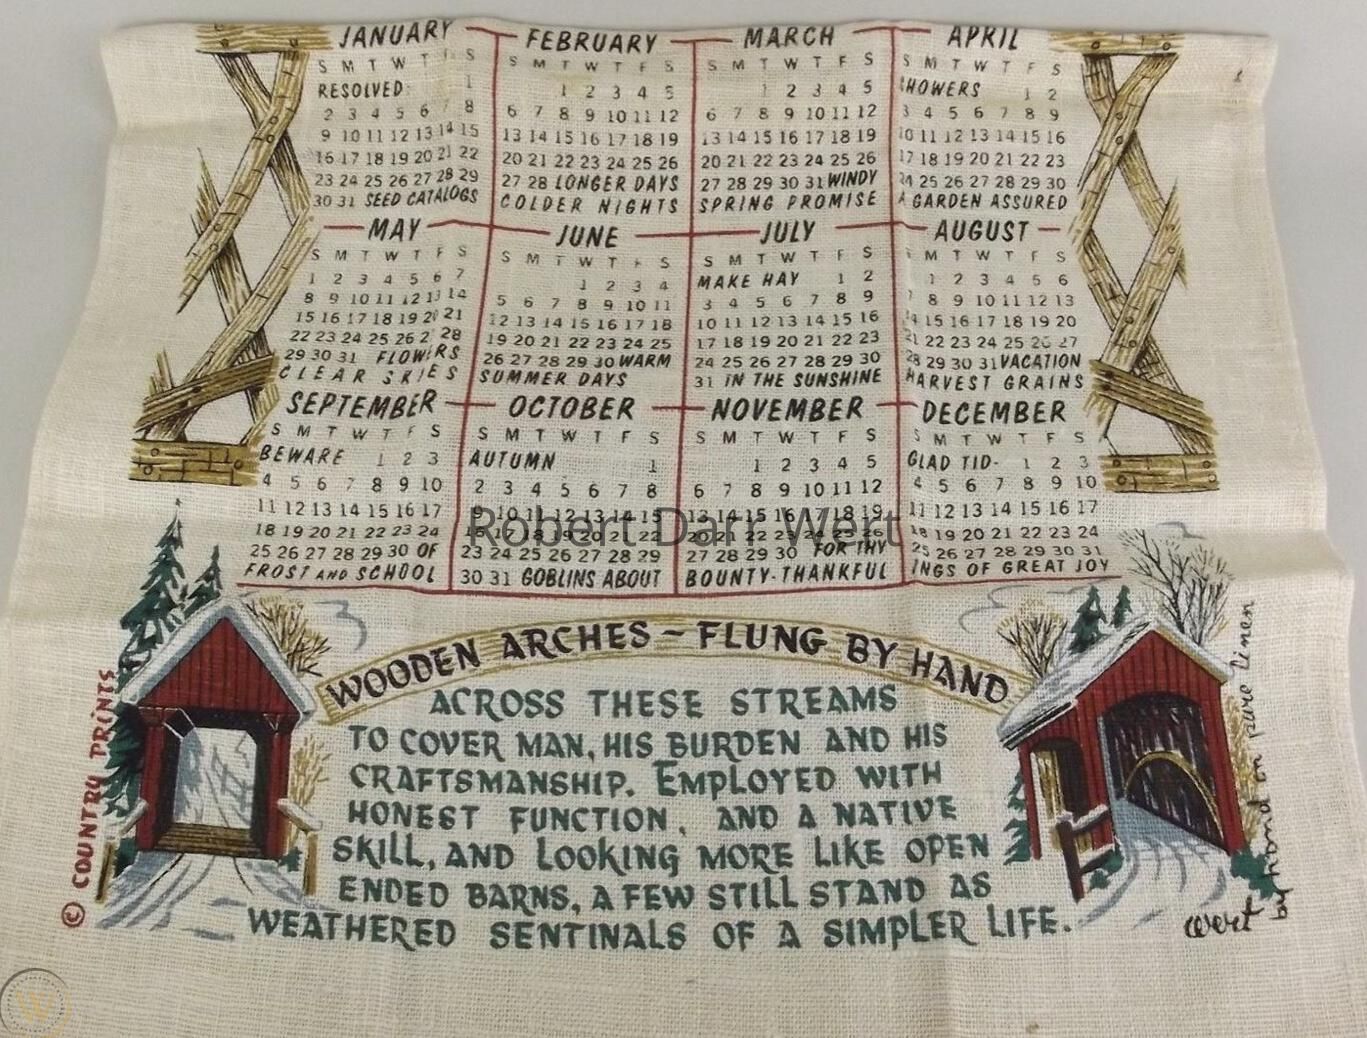 JANUARY
S M T W T F S
RESOLVED: 1
2 3 4 5 6 7 8
9 10 11 12 13 14 15
16 17 18 19 20 21 22
23 24 25 26 27 28 29
30 31 SEED CATALOGS
FEBRUARY
S M T W T F S
1 2 3 4 5
6 7 8 9 10 11 12
13 14 15 16 17 18 19
20 21 22 23 24 25 26
27 28 LONGER DAYS
COLDER NIGHTS
MARCH
S M T W T F S
1 2 3 4 5
6 7 8 9 10 11 12
13 14 15 16 17 18 19
20 21 22 23 24 25 26
27 28 29 30 31 WINDY
SPRING PROMISE
APRIL
S M T W T F S
SHOWERS 1 2
3 4 5 6 7 8 9
10 11 12 13 14 15 16
17 18 19 20 21 22 23
24 25 26 27 28 29 30
A GARDEN ASSURED
MAY
S M T W T F S
1 2 3 4 5 6 7
8 9 10 11 12 13 14
15 16 17 18 19 20 21
22 23 24 25 26 27 28
29 30 31 FLOWERS
CLEAR SKIES
JUNE
S M T W T F S
1 2 3 4
5 6 7 8 9 10 11
12 13 14 15 16 17 18
19 20 21 22 23 24 25
26 27 28 29 30 WARM
SUMMER DAYS
JULY
S M T W T F S
MAKE HAY 1 2
3 4 5 6 7 8 9
10 11 12 13 14 15 16
17 18 19 20 21 22 23
24 25 26 27 28 29 30
31 IN THE SUNSHINE
AUGUST
S M T W T F S
1 2 3 4 5 6
7 8 9 10 11 12 13
14 15 16 17 18 19 20
21 22 23 24 25 26 27
28 29 30 31 VACATION
HARVEST GRAINS
SEPTEMBER
S M T W T F S
BEWARE 1 2 3
4 5 6 7 8 9 10
11 12 13 14 15 16 17
18 19 20 21 22 23 24
25 26 27 28 29 30 OF
FROST AND SCHOOL
OCTOBER
S M T W T F S
AUTUMN 1
2 3 4 5 6 7 8
9 10 11 12 13 14 15
17 18 19 20 21 22
23 24 25 26 27 28 29
30 31 GOBLINS ABOUT
NOVEMBER
S M T W T F S
1 2 3 4 5
6 7 8 9 10 11 12
13 14 15 16 17 18 19
20 21 22 23 24 25 26
27 28 29 30 FOR THY
BOUNTY-THANKFUL
DECEMBER
S M T W T F S
GLAD TID- 1 2 3
4 5 6 7 8 9 10
11 12 13 14 15 16 17
18 19 20 21 22 23 24
25 26 27 28 29 30 31
INGS OF GREAT JOY
Robert Darr Wert
WOODEN ARCHES ~ FLUNG BY HAND
ACROSS THESE STREAMS
TO COVER MAN, HIS BURDEN AND HIS
CRAFTSMANSHIP. EMPLOYED WITH
HONEST FUNCTION, AND A NATIVE
SKILL, AND LOOKING MORE LIKE OPEN
ENDED BARNS, A FEW STILL STAND AS
WEATHERED SENTINALS OF A SIMPLER LIFE.
© COUNTRY PRINTS
wert
by hand on pure linen
W